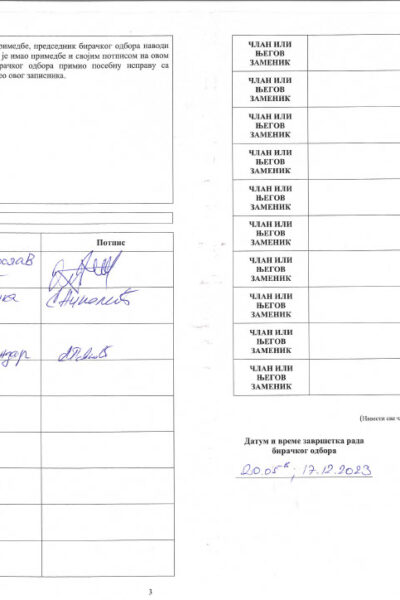 римедбе, председник бирачког одбора наводи
је имао примедбе и својим потписом на овом
рачког одбора примио посебну исправу са
ео овог записника.
Потпис
3
ЧЛАН ИЛИ
ЊЕГОВ
ЗАМЕНИК
ЧЛАН ИЛИ
ЊЕГОВ
ЗАМЕНИК
ЧЛАН ИЛИ
ЊЕГОВ
ЗАМЕНИК
ЧЛАН ИЛИ
ЊЕГОВ
ЗАМЕНИК
ЧЛАН ИЛИ
ЊЕГОВ
ЗАМЕНИК
ЧЛАН ИЛИ
ЊЕГОВ
ЗАМЕНИК
ЧЛАН ИЛИ
ЊЕГОВ
ЗАМЕНИК
ЧЛАН ИЛИ
ЊЕГОВ
ЗАМЕНИК
ЧЛАН ИЛИ
ЊЕГОВ
ЗАМЕНИК
ЧЛАН ИЛИ
ЊЕГОВ
ЗАМЕНИК
(Навести све ч
Датум и време завршетка рада
бирачког одбора
20.05 h; 17.12.2023